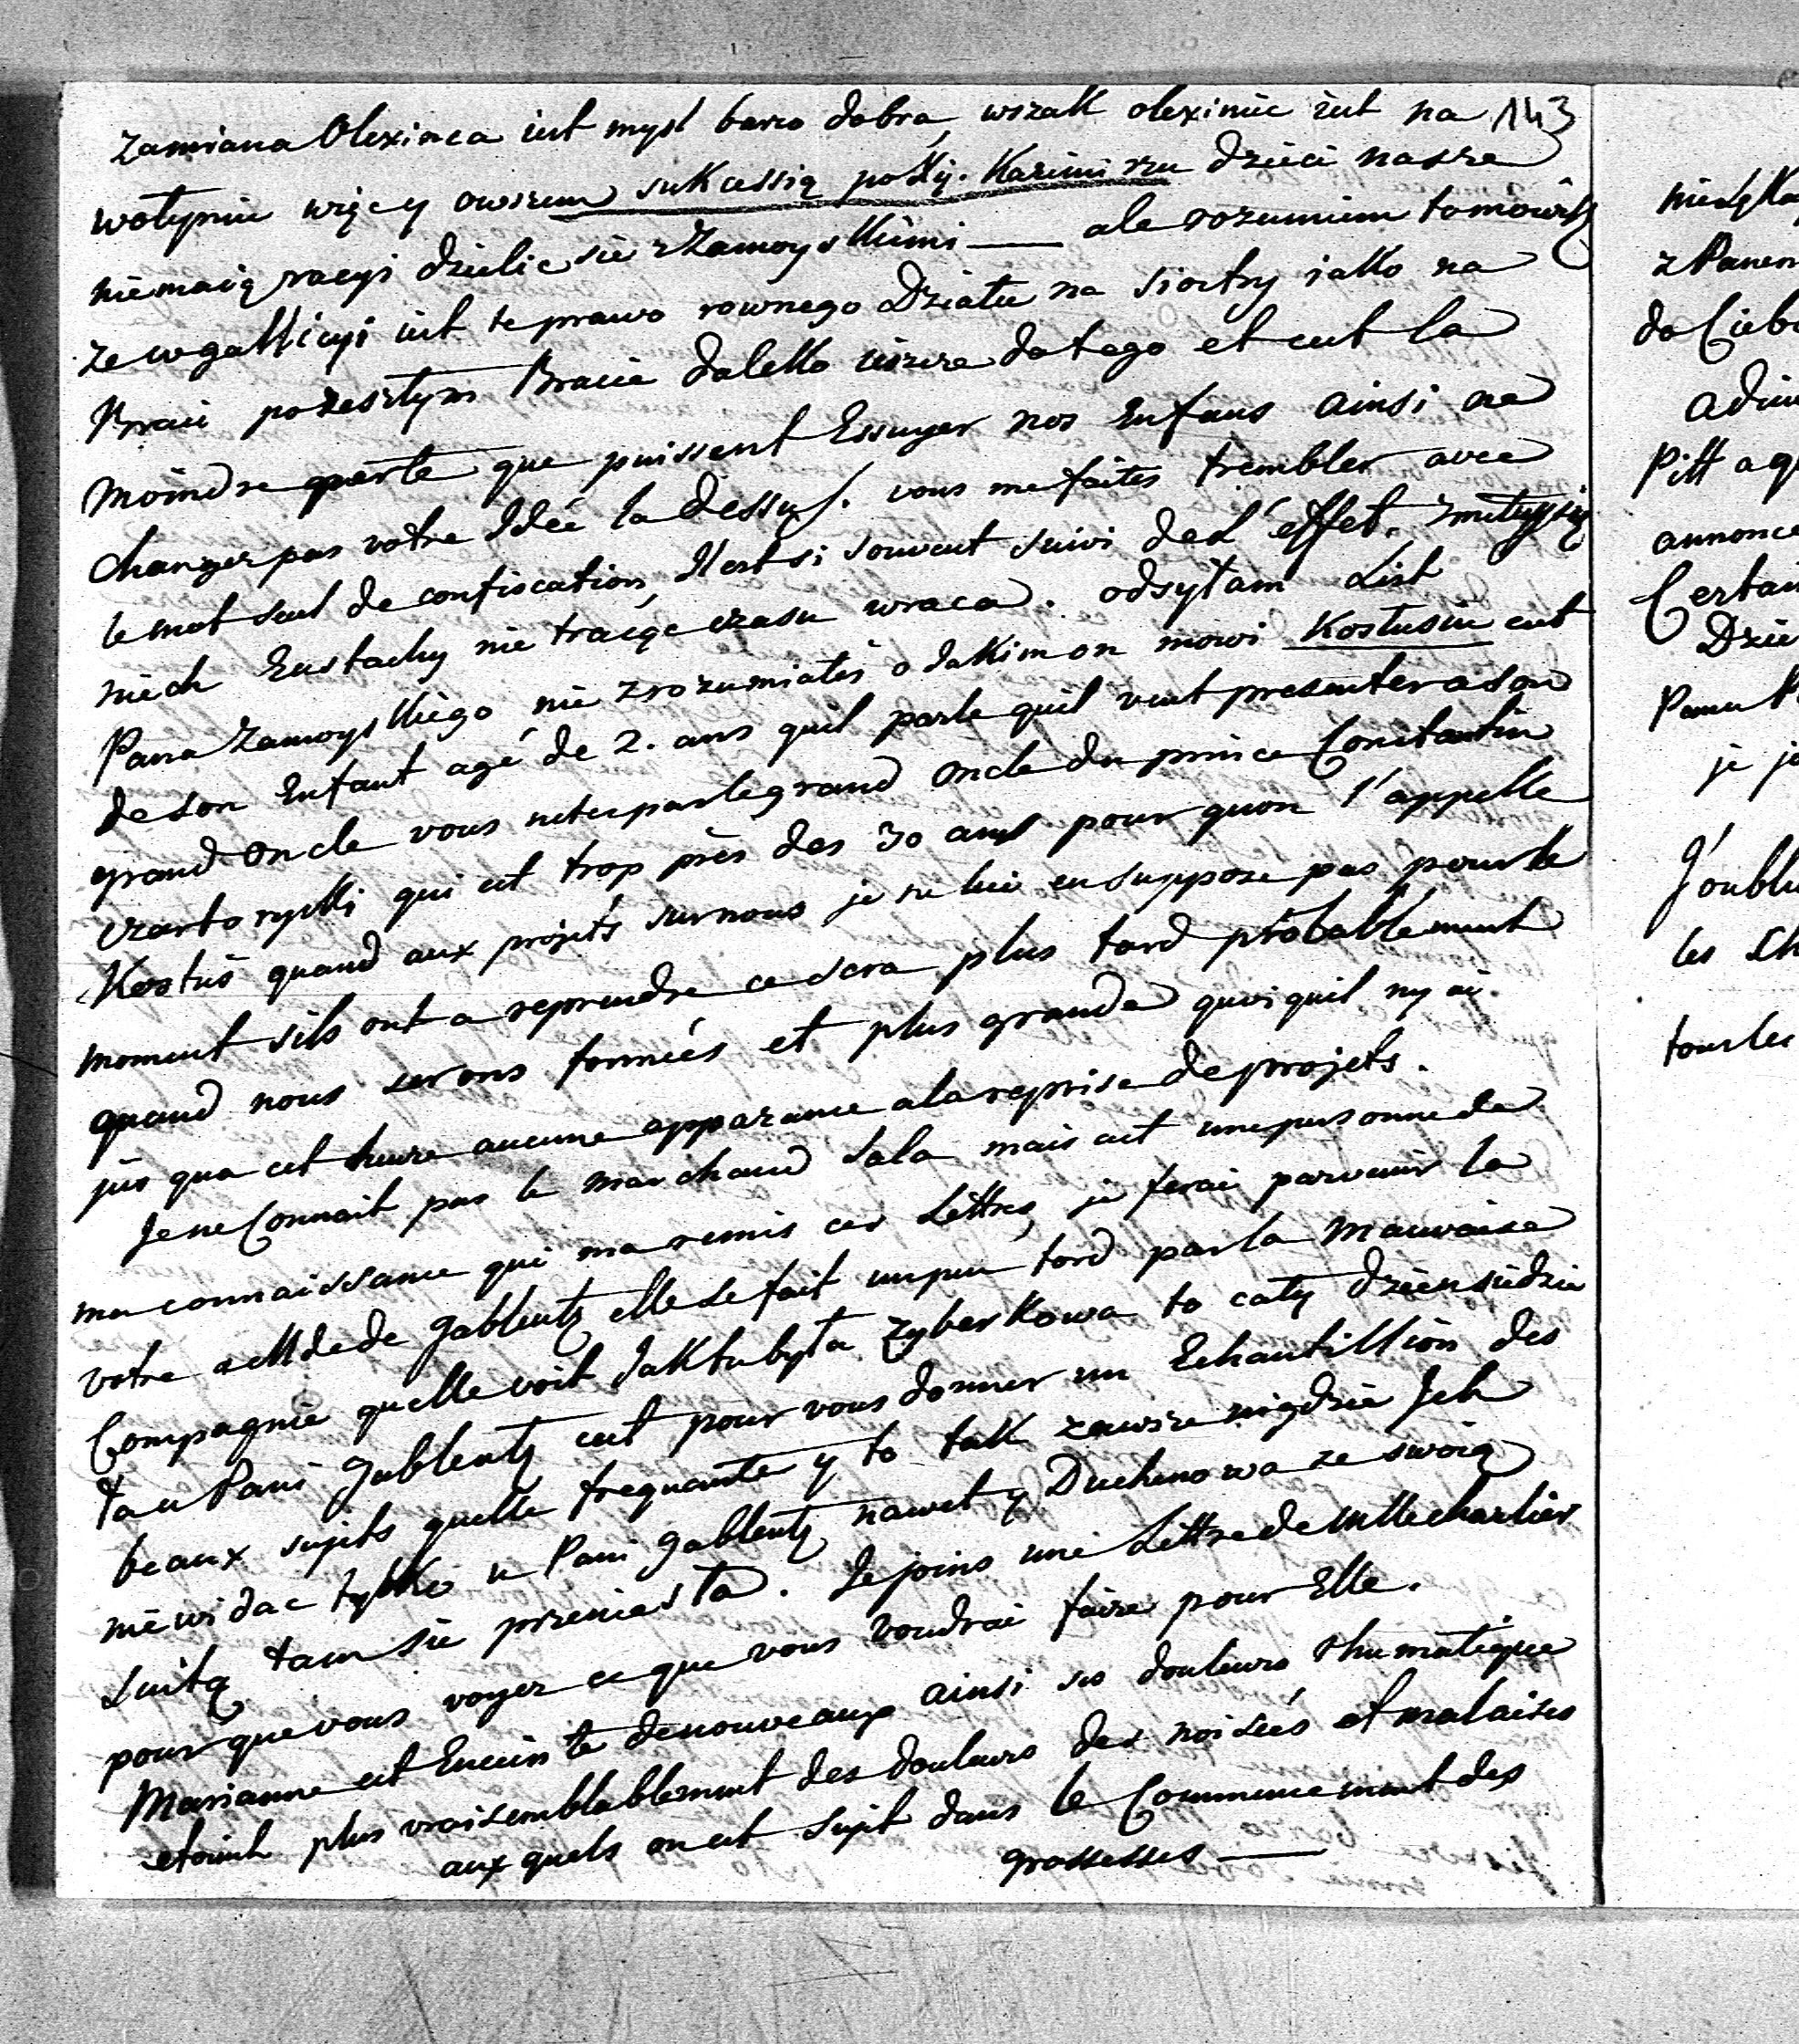 143
Zamiana Olexinca iest mysl barzo dobra, wszak olexiniec iest na
wołyniu więcy owszem sukcessią po Xij. Kazimirzu dzieci nasze
niemaią racyi dzielic sie z Zamoyskiemi — ale rozumiem to mowisz
ze w gallicyi iest te prawo rownego Działu na Siostry iako na
Braci po zeszłym Bracie daleko ieszcze do tego et cest la
moindre perte que puissent Essuyer nos Enfans ainsi ne
changez pas votre Idée la dessus. vous me faites trembler avec
le mot seul de confiscation, Il est si souvent suivi de L'effet. zmiłuysie
niech Eustachy nie tracąc czasu wraca. odsyłam List
Pana Zamoyskiego nie zrozumiałeś o Jakim on mowi Kostusiu cest
de son Enfant agé de 2. ans quil parle quil veut presenter a son
grand oncle vous netes pas le grand oncle du prince Constantin
Czartoryski qui est trop près des 30 ans pour quon l'appelle
Kostuś quand aux projets sur nous je ne lui en suppose pas pour le
moment sils ont a reprendre ce sera plus tard probablement
quand nous serons formées et plus grande quoi quil ny ai
jus qua cet heure aucune apparance a la reprise de projets.
Je ne Connait pas le marchand Sala mais cest une personne de
ma connaissance qui ma remis ces Lettres, je ferai parvenir la
votre a Mde de Gablentz elle se fait un peu tord par la Mauvaise
Compagnie quelle voit Jak tu była Zyberkowa to cały dzień siedzia
ta u Pani Gablentz cest pour vous donner un Echantillion des
beaux sujets quelle frequante y to tak zawsze nigdzie Jch
nie widac tylko u Pani Gablentz nawet y Duchenowa ze swoią
Suitą tam sie przeniesła. Je joins une Lettre de Mlle charlier
pour que vous voyez ce que vous voudrai faire pour Elle.
Marianne est Enceinte de nouveaux ainsi ses douleurs rhumatique
etoient plus vraisemblablement des douleurs des noisées et malaises
aux quels on est sujet dans le Commencement des
grossesses —
z Panem
annonce
Pana
je
les
tous les